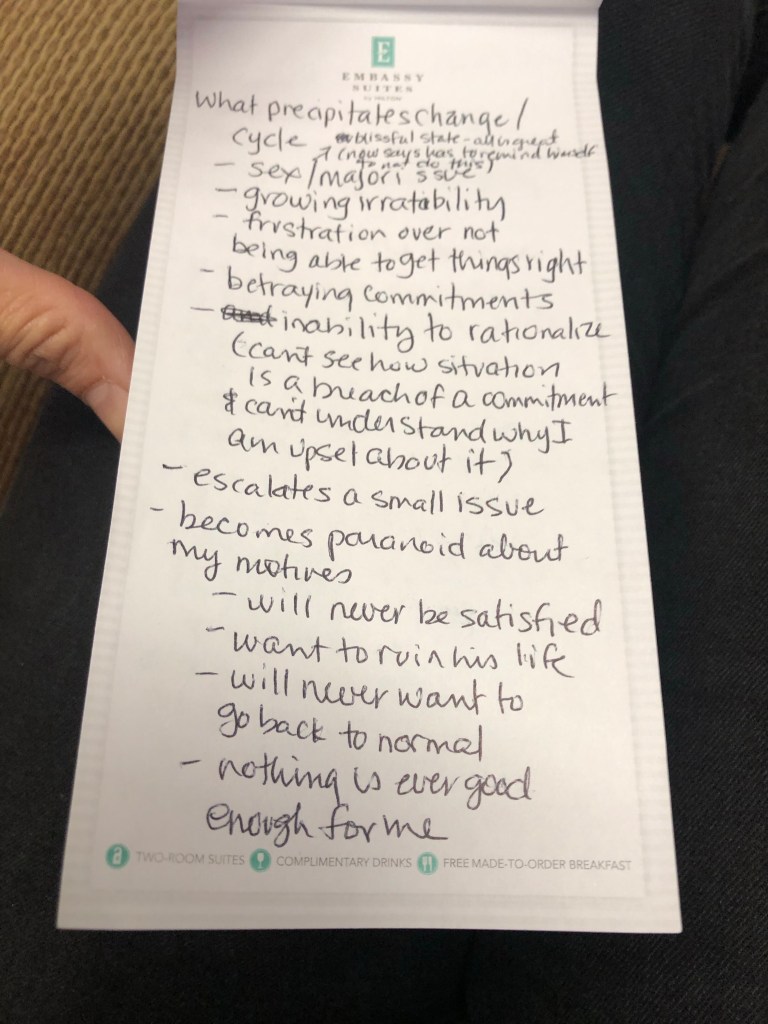 E
EMBASSY
SUITES
by HILTON
What precipitates change/
cycle blissful state - all is great
(now says has to remind himself
to not do this)
- sex/major issue
- growing irratability
- frustration over not
being able to get things right
- betraying commitments
- and inability to rationalize
(can't see how situation
is a breach of a commitment
& can't understand why I
am upset about it)
- escalates a small issue
- becomes paranoid about
my motives
- will never be satisfied
- want to ruin his life
- will never want to
go back to normal
- nothing is ever good
enough for me
a TWO-ROOM SUITES COMPLIMENTARY DRINKS FREE MADE-TO-ORDER BREAKFAST